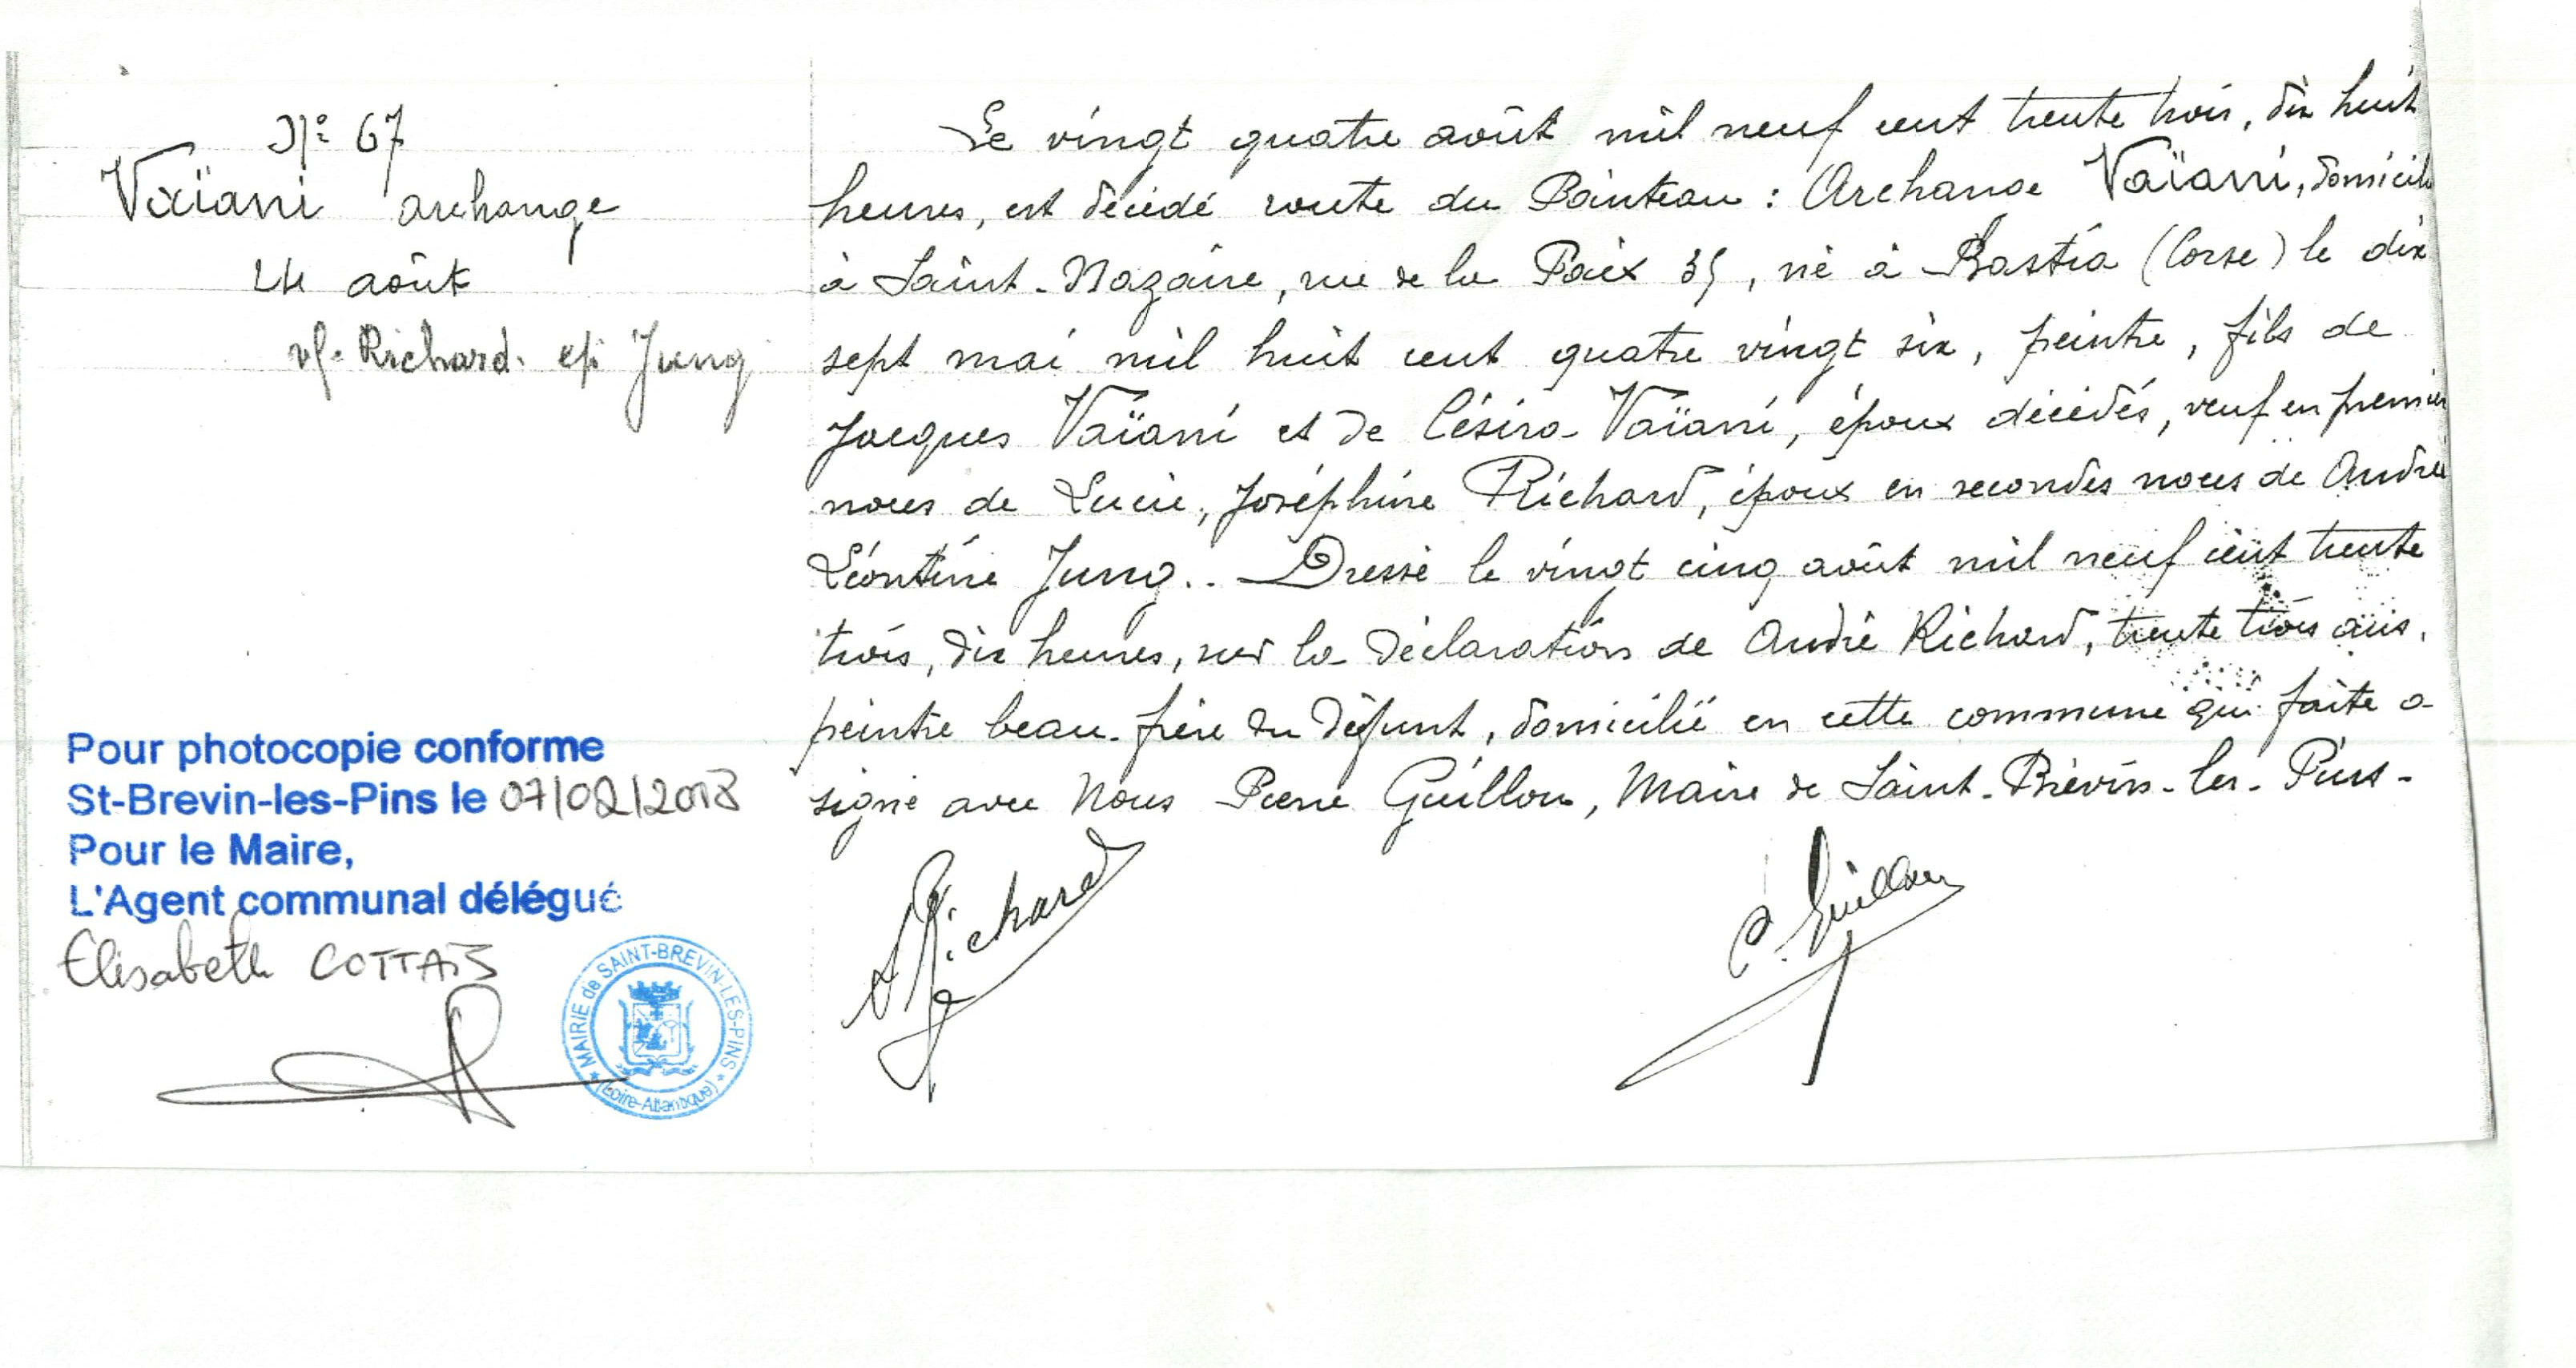 N° 67
Vaïani archange
24 août
vf. Richard. ép. Jung
Le vingt quatre août mil neuf cent trente trois, dix huit
heures, est décédé route du Pointeau : Archange Vaïani, domicil
à Saint-Nazaire, rue de la Paix 35, né à Bastia (Corse) le dix
sept mai mil huit cent quatre vingt six, peintre, fils de
Jacques Vaïani et de Césira Vaïani, époux décédés, veuf en premier
noces de Lucie, Joséphine Richard, époux en secondes noces de Andrée
Léontine Jung.. Dressé le vingt cinq août mil neuf cent trente
trois, dix heures, sur la déclaration de André Richard, trente trois ans,
peintre beau-frère du défunt, domicilié en cette commune qui faite a
signé avec Nous Pierre Guillou, Maire de Saint-Brévin-les-Pins-
A Richard
P. Guillou
Pour photocopie conforme
St-Brevin-les-Pins le 07/02/2013
Pour le Maire,
L'Agent communal délégué
Elisabeth COTTAIS
MAIRIE de SAINT-BREVIN-LES-PINS
(Loire-Atlantique)